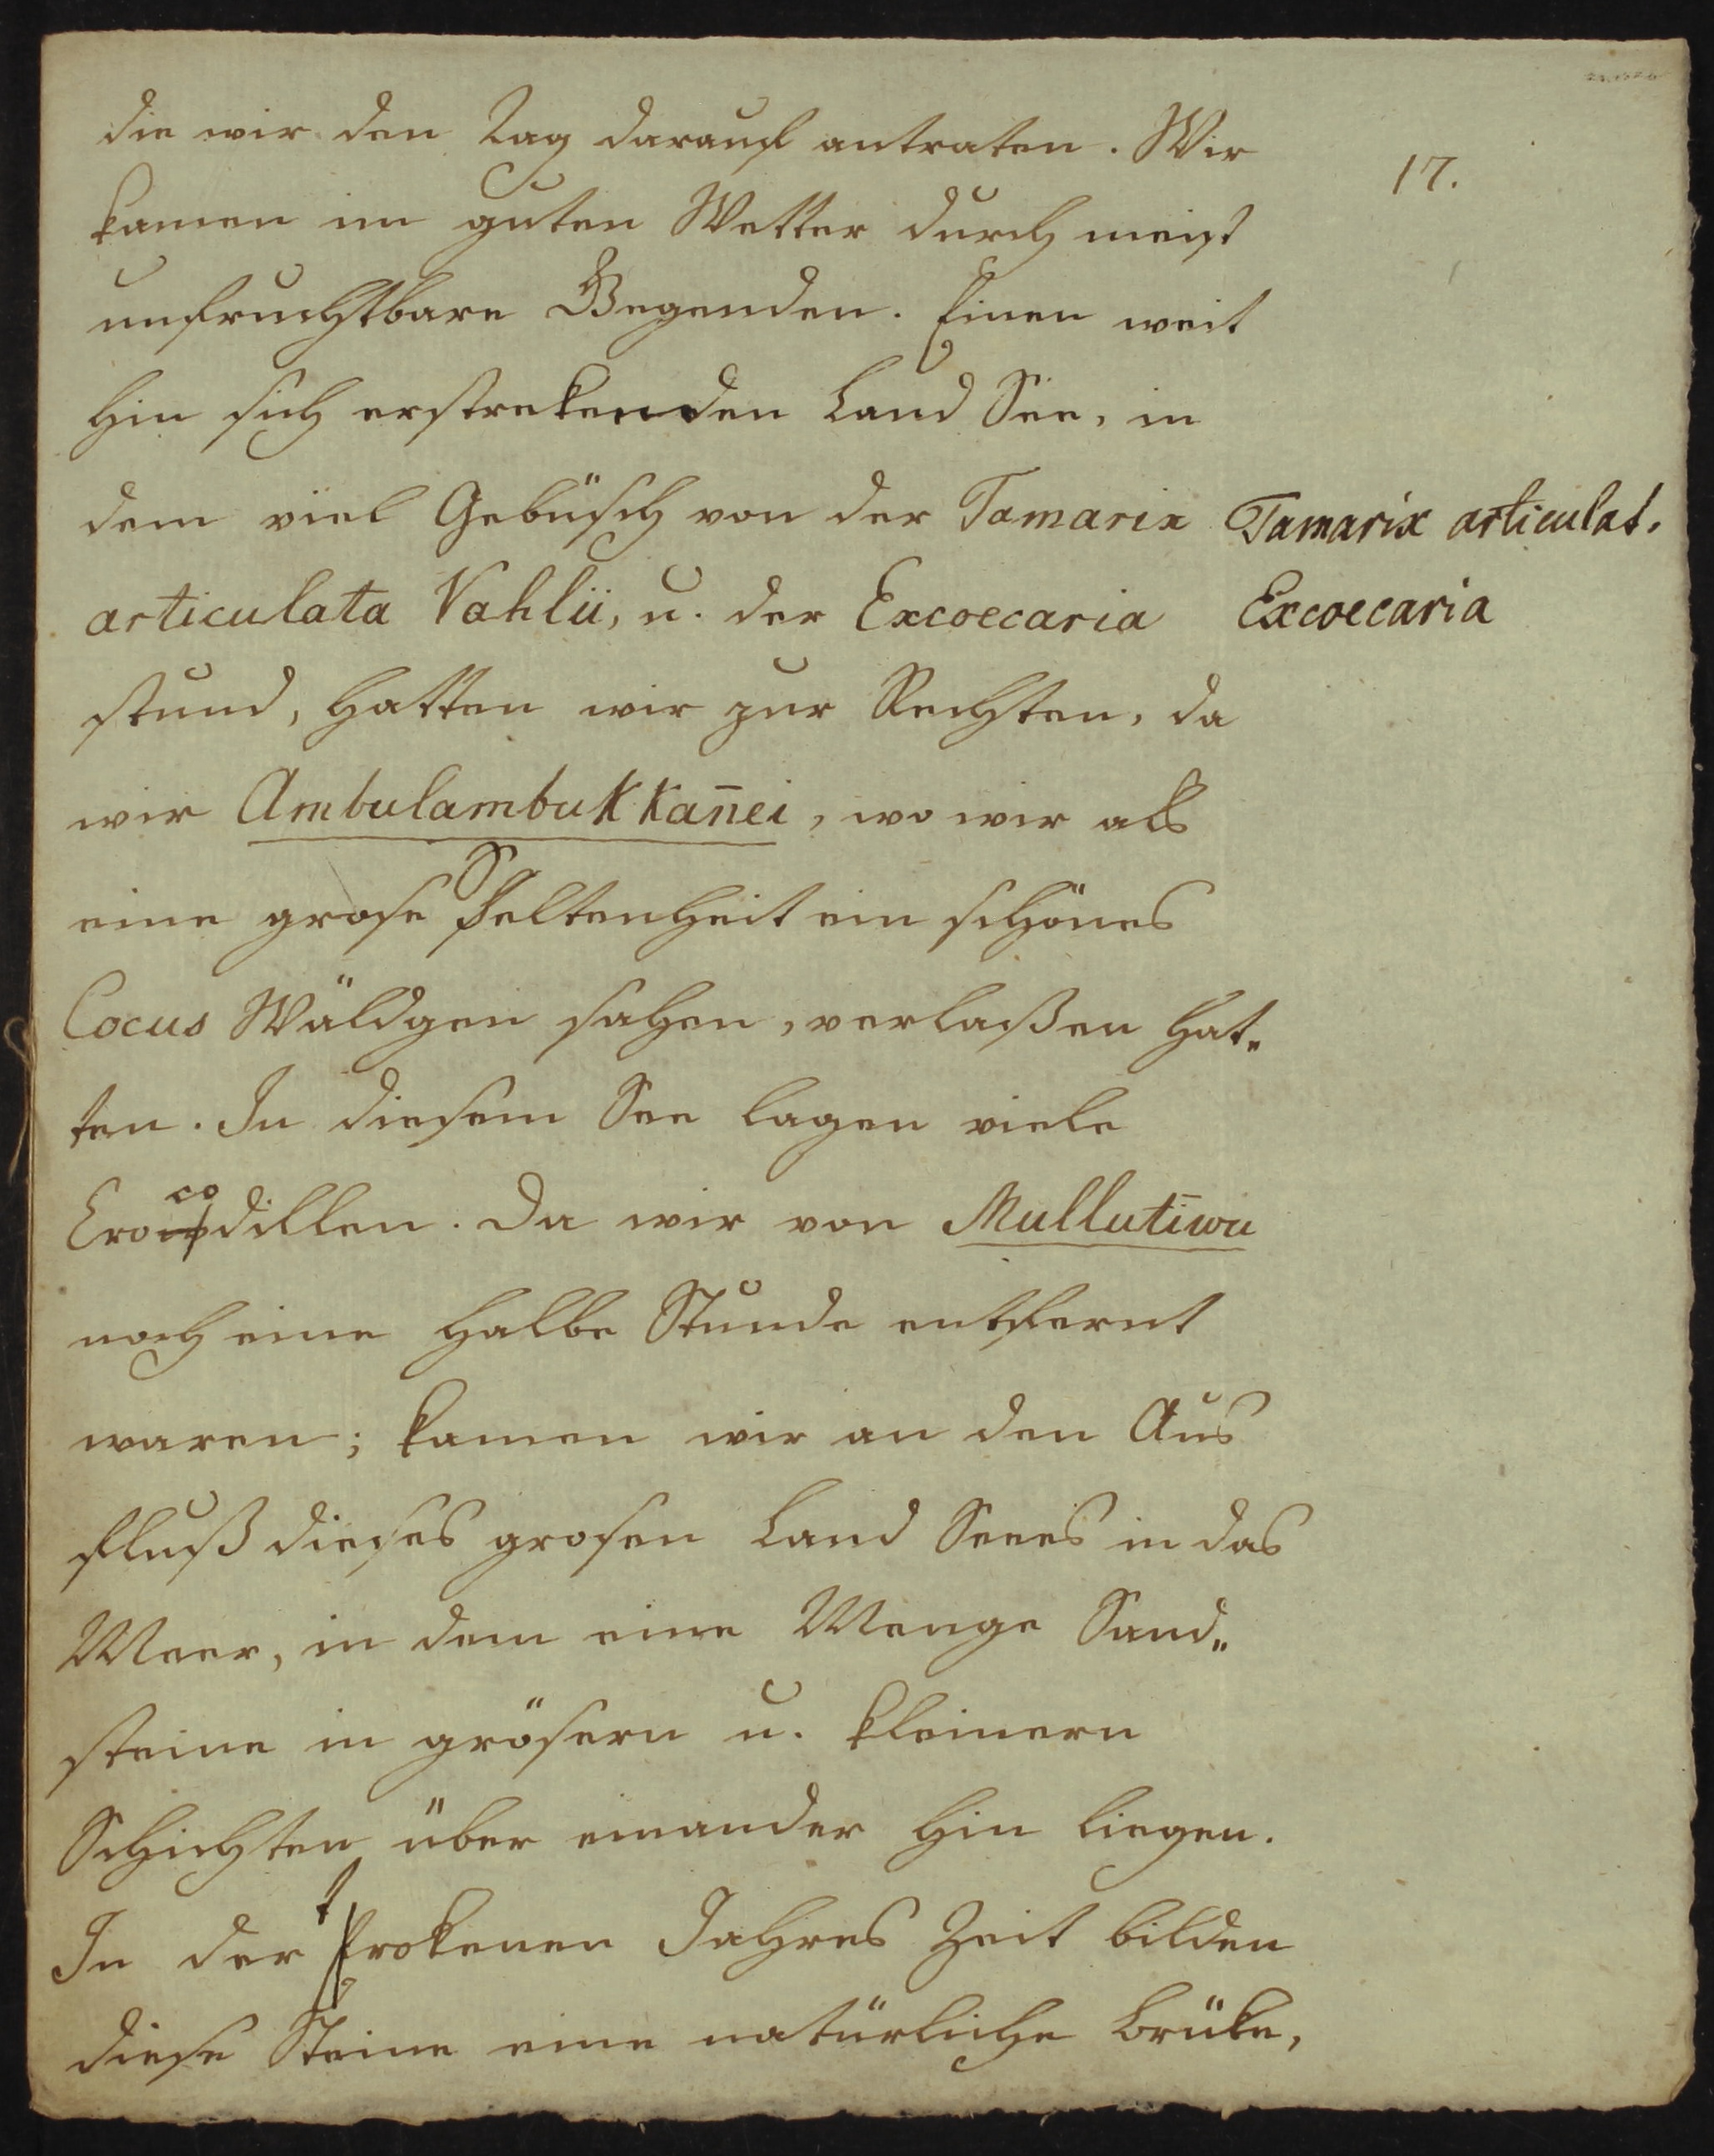 17.
die wir den Tag darauf antraten. Wir
kamen im guten Wetter durch meist
unfruchtbare Gegenden. Einen weit
hin sich erstrekenden Land See, in
dem viel Gebüsch von der Tamarix
Tamarix articulat.
articulata Vahlii, u. der Excoecaria
Excoecaria
stund, hatten wir zur Rechten, da
wir Ambulambukkan̄ei, wo wir als
eine grose Seltenheit ein schönes
Cocus Wäldgen sahen, verlaßen hat„
ten. In diesem See lagen viele
Crocodillen. Da wir von Mullutiwu
noch eine halbe Stunde entfernt
waren; kamen wir an den Aus
fluß dieses grosen Land Sees in das
Meer, in dem eine Menge Sand„
steine in grösern u. kleinern
Schichten über einander hin liegen.
In der trokenen Jahres Zeit bilden
diese Steine eine natürliche Brüke,